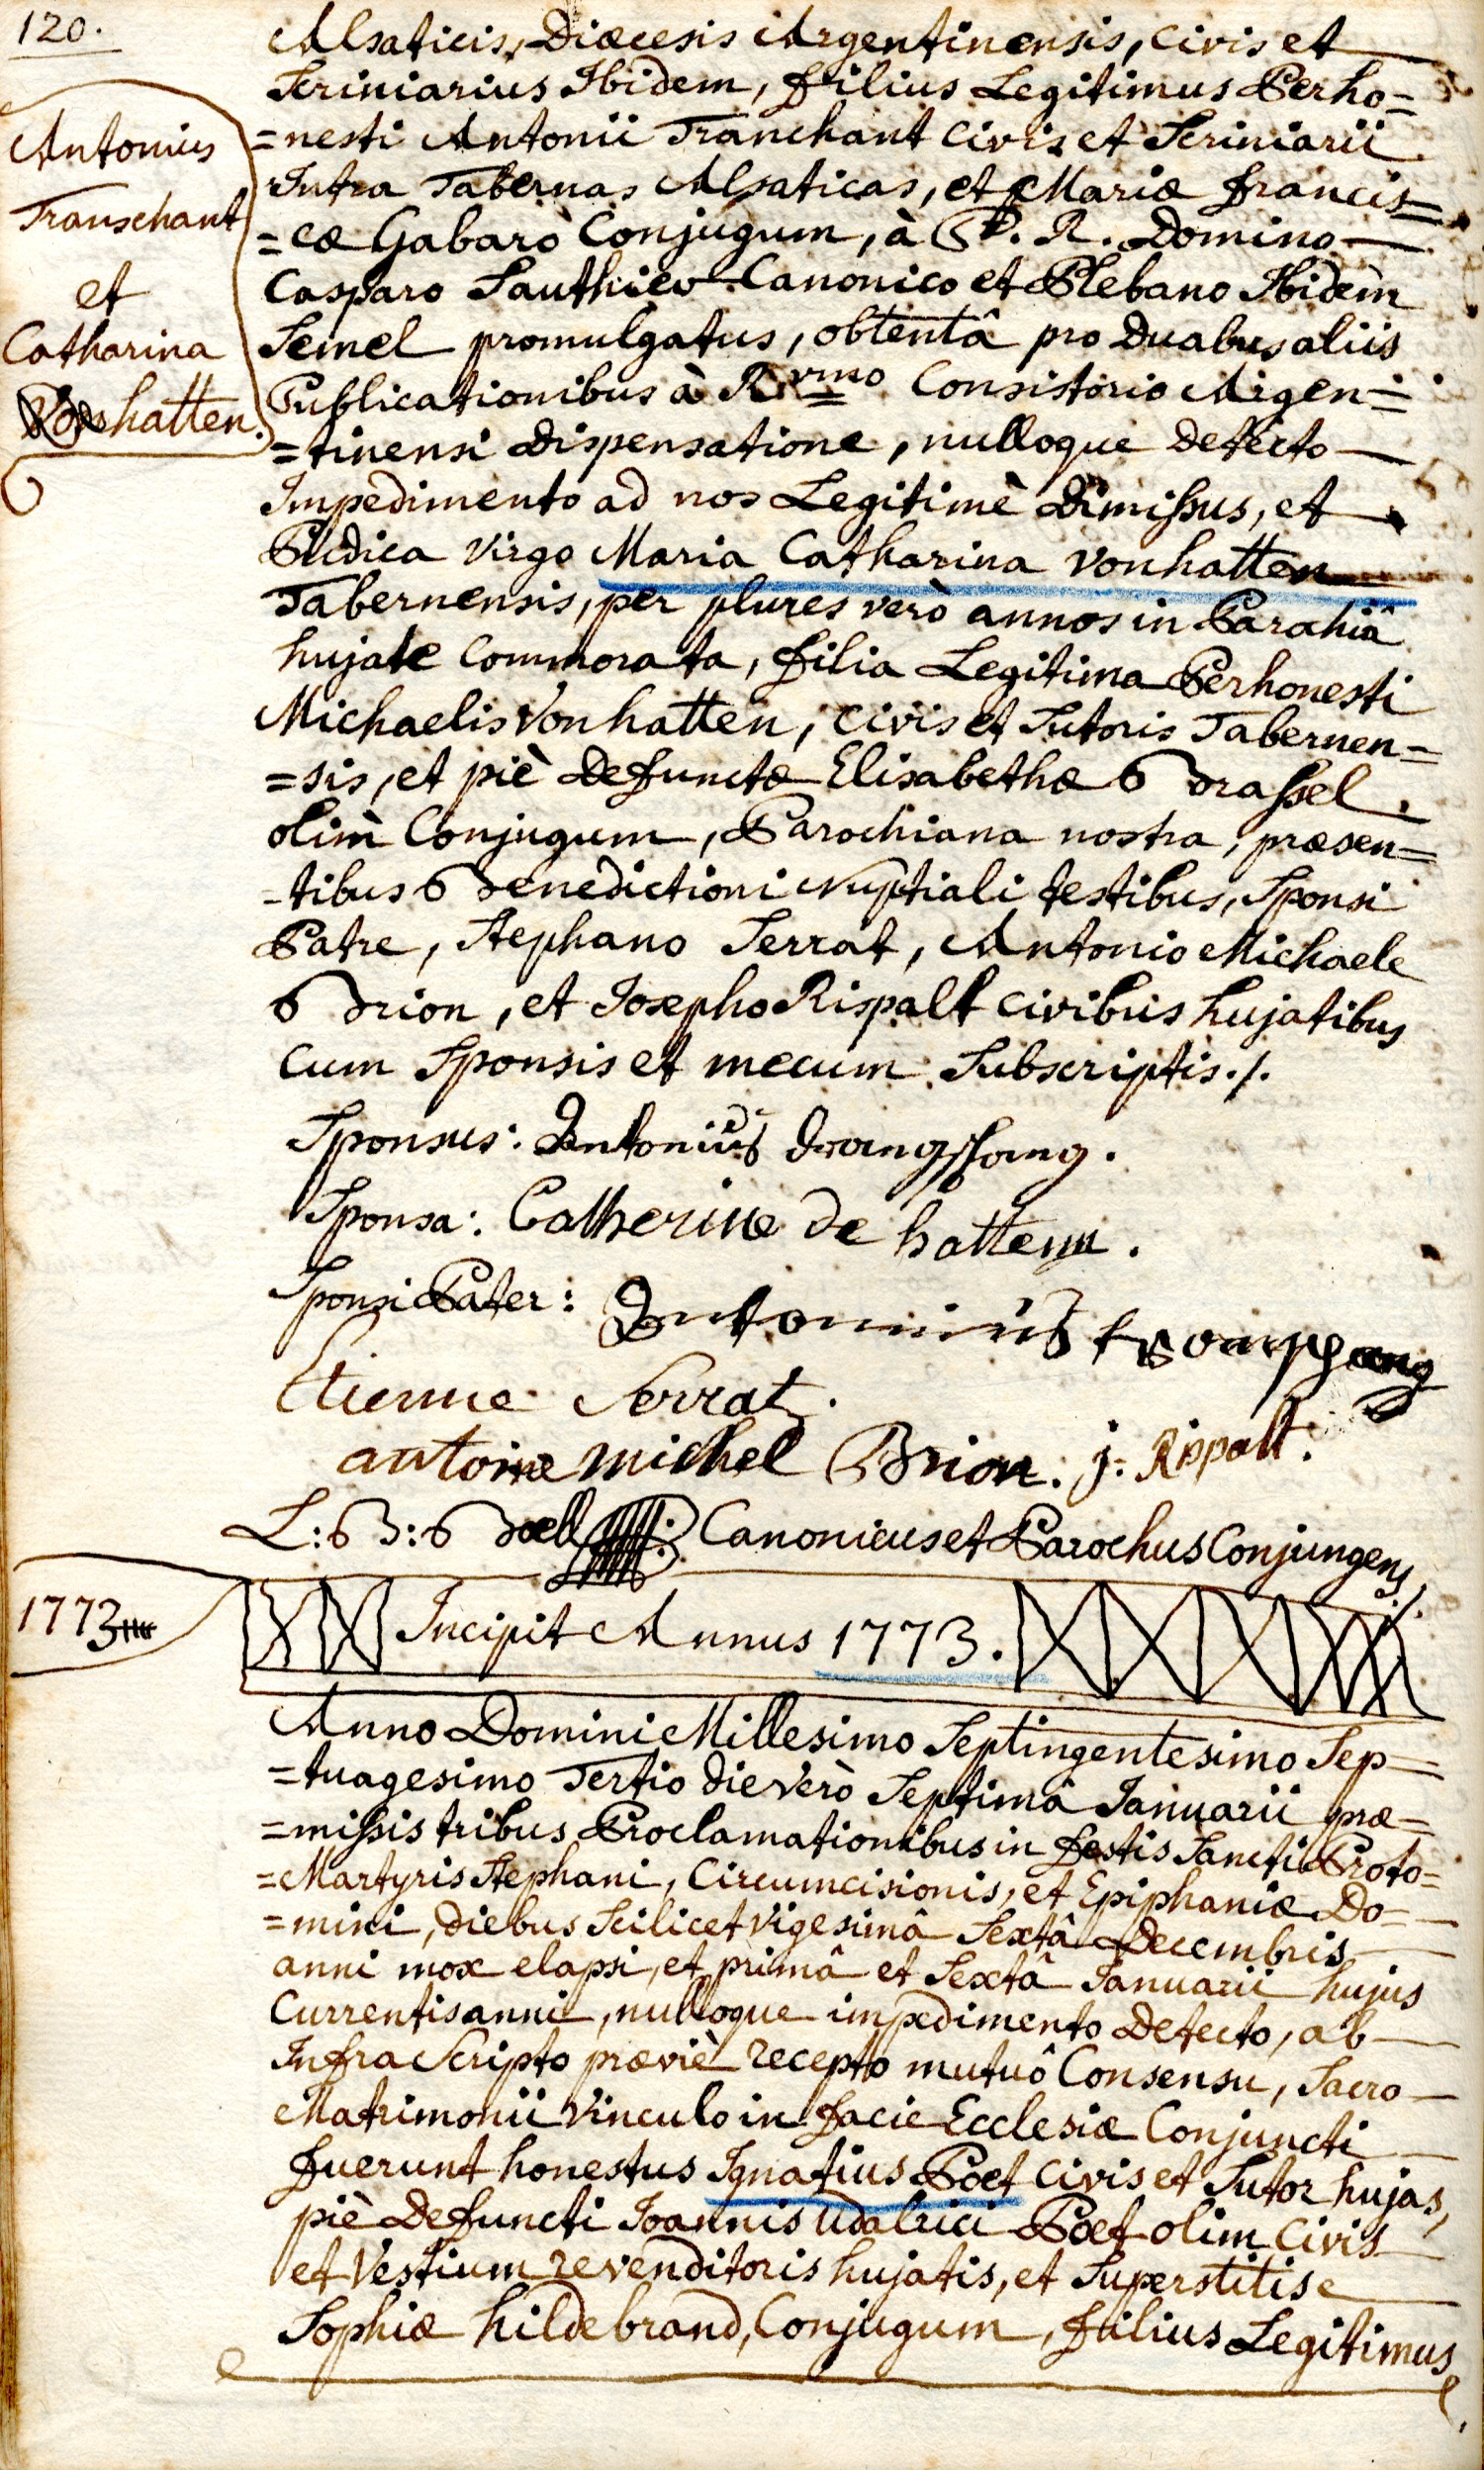 120.
Antonius
Transchant
et
Catharina
Vonhatten.
Alsaticis, Diœcesis Argentinensis, Civis et
Scriniarius Ibidem, filius Legitimus Perho=
=nesti Antonii Tranchant Civis et Scriniarii
Intra Tabernas Alsaticas, et Mariæ francis=
=cæ Gabarò Conjugum, à P. R. Domino
Casparo Sauthier Canonico et Plebano Ibidem
Semel promulgatus, obtentâ pro Duabus aliis
Publicationibus à R.vmo Consistorio Argen=
=tinensi Dispensatione, nulloque Detecto
Impedimento ad nos Legitimè Dimissus, et
Pudica Virgo Maria Catharina Vonhatten
Tabernensis, per plures verò annos in Parahiâ
hujate Commorata, filia Legitima Perhonesti
Michaelis Vonhatten, Civis et Sutoris Tabernen=
=sis, et piè Defunctæ Elisabethæ Brassel.
olim Conjugum, Parochiana nostra, præsen=
-tibus Benedictioni Nuptiali testibus, Sponsi
Patre, Stephano Serrat, Antonio Michaele
Brion, et Josepho Rispalt Civibus hujatibus
Cum Sponsis et mecum Subscriptis./.
Sponsus: Antonius drangschang.
Sponsa: Catherine de hattenn.
Sponsi Pater: Antonnius
Etienne Serrat.
antoine michel Brion. j: Rispalt.
L:B:Bœll Canonicus et Parochus Conjungens
1773
Incipit Annus 1773.
Anno Domini Millesimo Septingentesimo Sep=
=tuagesimo Tertio die Verò Septimâ Januarii præ=
=missis tribus Proclamationibus in festis Sancti Proto=
=Martyris Stephani, Circumcisionis, et Epiphaniæ Do=
=mini, diebus Scilicet Vigesimâ Sextâ Decembris
anni mox elapsi, et primâ et Sextâ Januarii hujus
Currentis anni, nulloque impedimento Detecto, ab
Infra Scripto præviè recepto mutuô Consensu, Sacro
Matrimonii Vinculo in facie Ecclesiæ Conjuncti
fuerunt honestus Ignatius Poet Civis et Sutor hujas,
piè Defuncti Joannis Udalrici Poet olim Civis
et Vestium revenditoris hujatis, et Superstitis
Sophiæ hildebrand, Conjugum, filius Legitimus